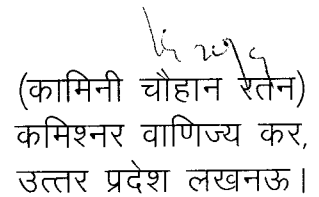 (कामिनी चौहान रतन)
कमिश्नर वाणिज्य कर,
उत्तर प्रदेश लखनऊ।